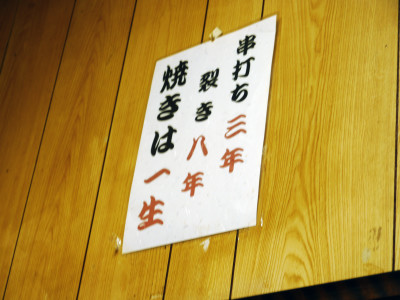 串打ち三年
裂き八年
焼きは一生